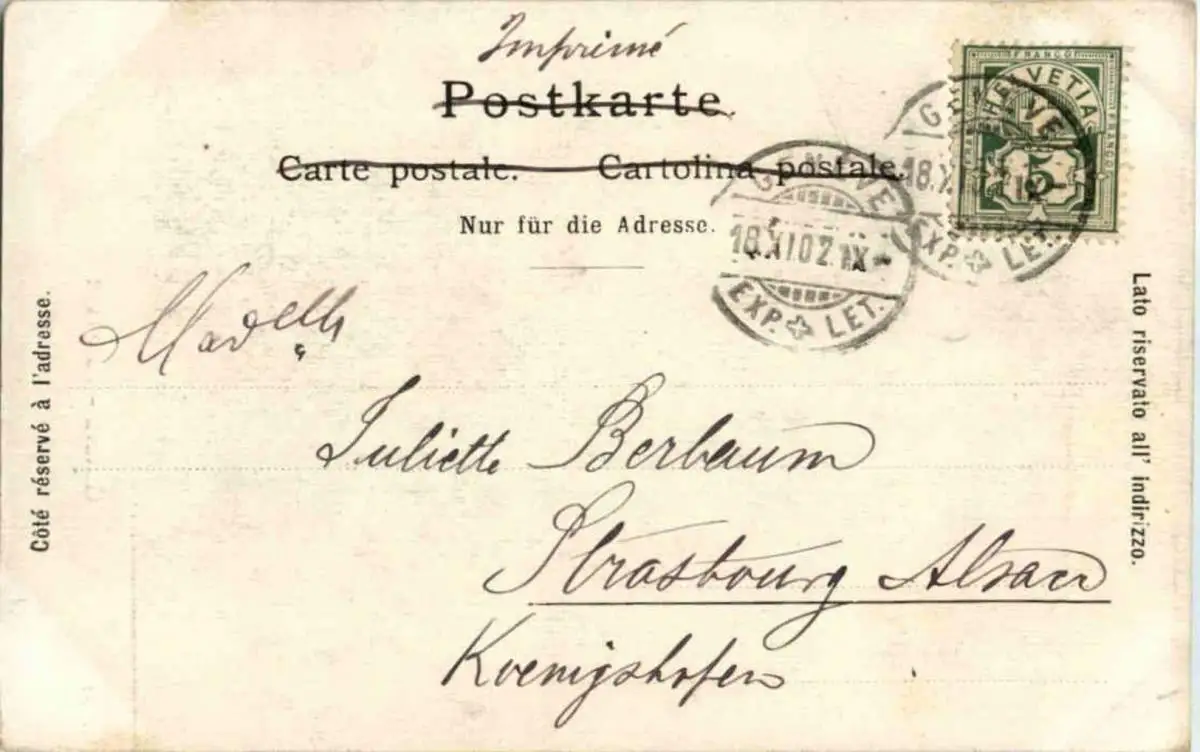 Imprimé
Postkarte.
Carte postale. Cartolina postale.
Nur für die Adresse.
FRANCO
HELVETIA
FRANCO
FRANCO
5
GENÈVE
18.XI.02.IX
EXP. LET.
GENÈVE
18.X
EXP. LET.
Côté réservé à l'adresse.
Lato riservato all' indirizzo.
Madelle
Juliette Berbaum
Strasbourg Alsace
Koenigshofen